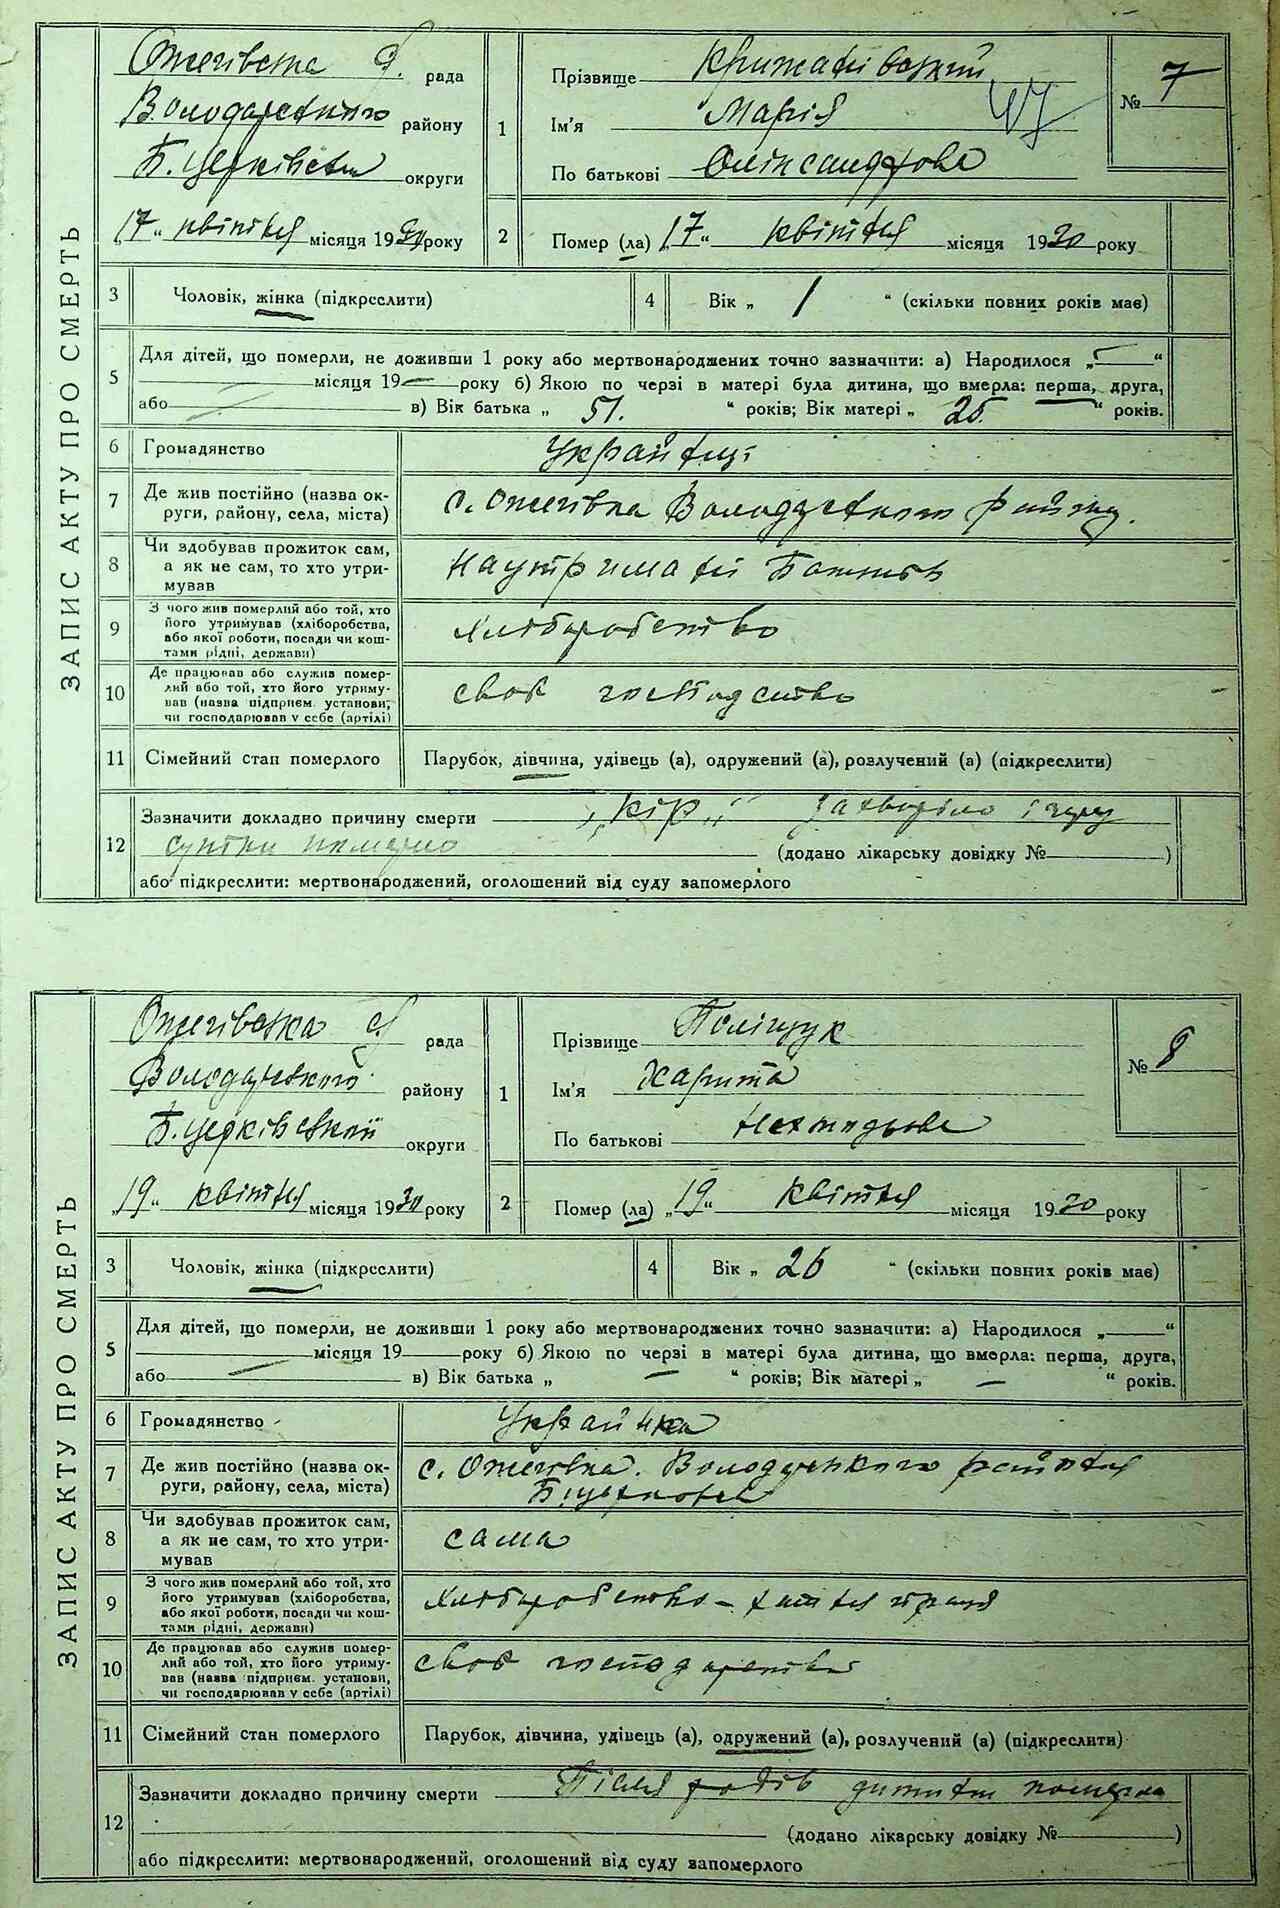 ЗАПИС АКТУ ПРО СМЕРТЬ
Ожегівська с. рада
Володарського району
Б. Церківської округи
„17“ квітня місяця 1930 року
1
Прізвище
Ім'я Марія
По батькові Олександрова
№ 7
47
2 Помер (ла) „17“ квітня місяця 1930 року
3 Чоловік, жінка (підкреслити)
4 Вік „ 1 “ (скільки повних років має)
5 Для дітей, що померли, не доживши 1 року або мертвонароджених точно зазначити: а) Народилося „—“
— місяця 19— року б) Якою по черзі в матері була дитина, що вмерла: перша, друга,
або — в) Вік батька „ 51. “ років; Вік матері „ “ років.
6 Громадянство
7 Де жив постійно (назва ок-
руги, району, села, міста)
с. Ожегівка Володарського району.
8 Чи здобував прожиток сам,
а як не сам, то хто утри-
мував
9 З чого жив померлий або той, хто
його утримував (хліборобства,
або якої роботи, посади чи кош-
тами рідні, держави)
хліборобство
10 Де працював або служив помер-
лий або той, хто його утриму-
вав (назва підприєм. установи,
чи господарював у себе (артілі)
своє
11 Сімейний стан померлого
Парубок, дівчина, удівець (а), одружений (а), розлучений (а) (підкреслити)
12 Зазначити докладно причину смерти „кір“ захворіло і через
сутки померло (додано лікарську довідку № )
або підкреслити: мертвонароджений, оголошений від суду запомерлого
ЗАПИС АКТУ ПРО СМЕРТЬ
Ожегівська с. рада
Володарського району
Б. Церківської округи
„19“ квітня місяця 1930 року
1
Прізвище Поліщук
Ім'я Харита
По батькові
№ 8
2 Помер (ла) „19“ квітня місяця 1930 року
3 Чоловік, жінка (підкреслити)
4 Вік „ 26 “ (скільки повних років має)
5 Для дітей, що померли, не доживши 1 року або мертвонароджених точно зазначити: а) Народилося „—“
— місяця 19— року б) Якою по черзі в матері була дитина, що вмерла: перша, друга,
або — в) Вік батька „ — “ років; Вік матері „ — “ років.
6 Громадянство Українка
7 Де жив постійно (назва ок-
руги, району, села, міста)
с. Ожегівка. Володарського
8 Чи здобував прожиток сам,
а як не сам, то хто утри-
мував
сама
9 З чого жив померлий або той, хто
його утримував (хліборобства,
або якої роботи, посади чи кош-
тами рідні, держави)
Хліборобство –
10 Де працював або служив помер-
лий або той, хто його утриму-
вав (назва підприєм. установи,
чи господарював у себе (артілі)
своє господарство
11 Сімейний стан померлого
Парубок, дівчина, удівець (а), одружений (а), розлучений (а) (підкреслити)
12 Зазначити докладно причину смерти Після родів дитини померла
(додано лікарську довідку № )
або підкреслити: мертвонароджений, оголошений від суду запомерлого